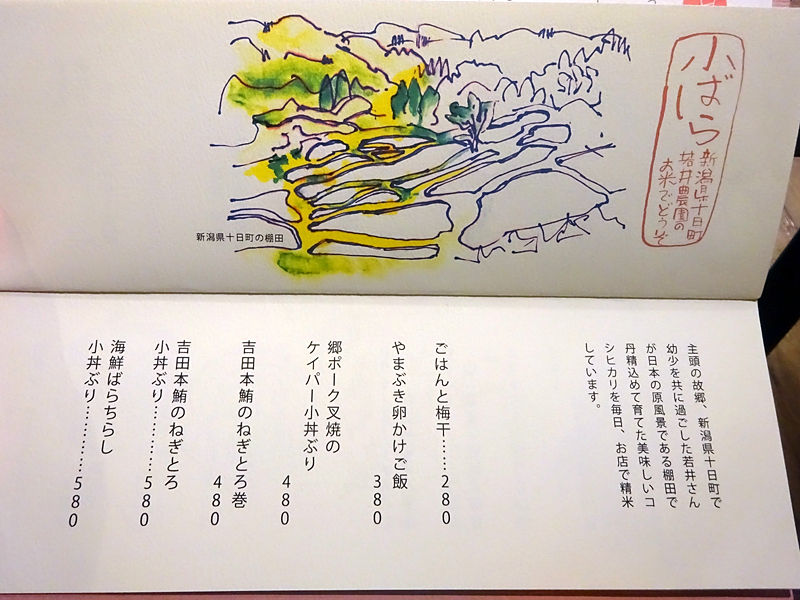 小ばら
新潟県十日町
若井農園の
お米でどうぞ
新潟県十日町の棚田
主頭の故郷、新潟県十日町で
幼少を共に過ごした若井さん
が日本の原風景である棚田で
丹精込めて育てた美味しいコ
シヒカリを毎日、お店で精米
しています。
ごはんと梅干……280
やまぶき卵かけご飯
380
郷ポーク叉焼の
ケイパー小丼ぶり
480
吉田本鮪のねぎとろ巻
480
吉田本鮪のねぎとろ
小丼ぶり…………580
海鮮ばらちらし
小丼ぶり…………580